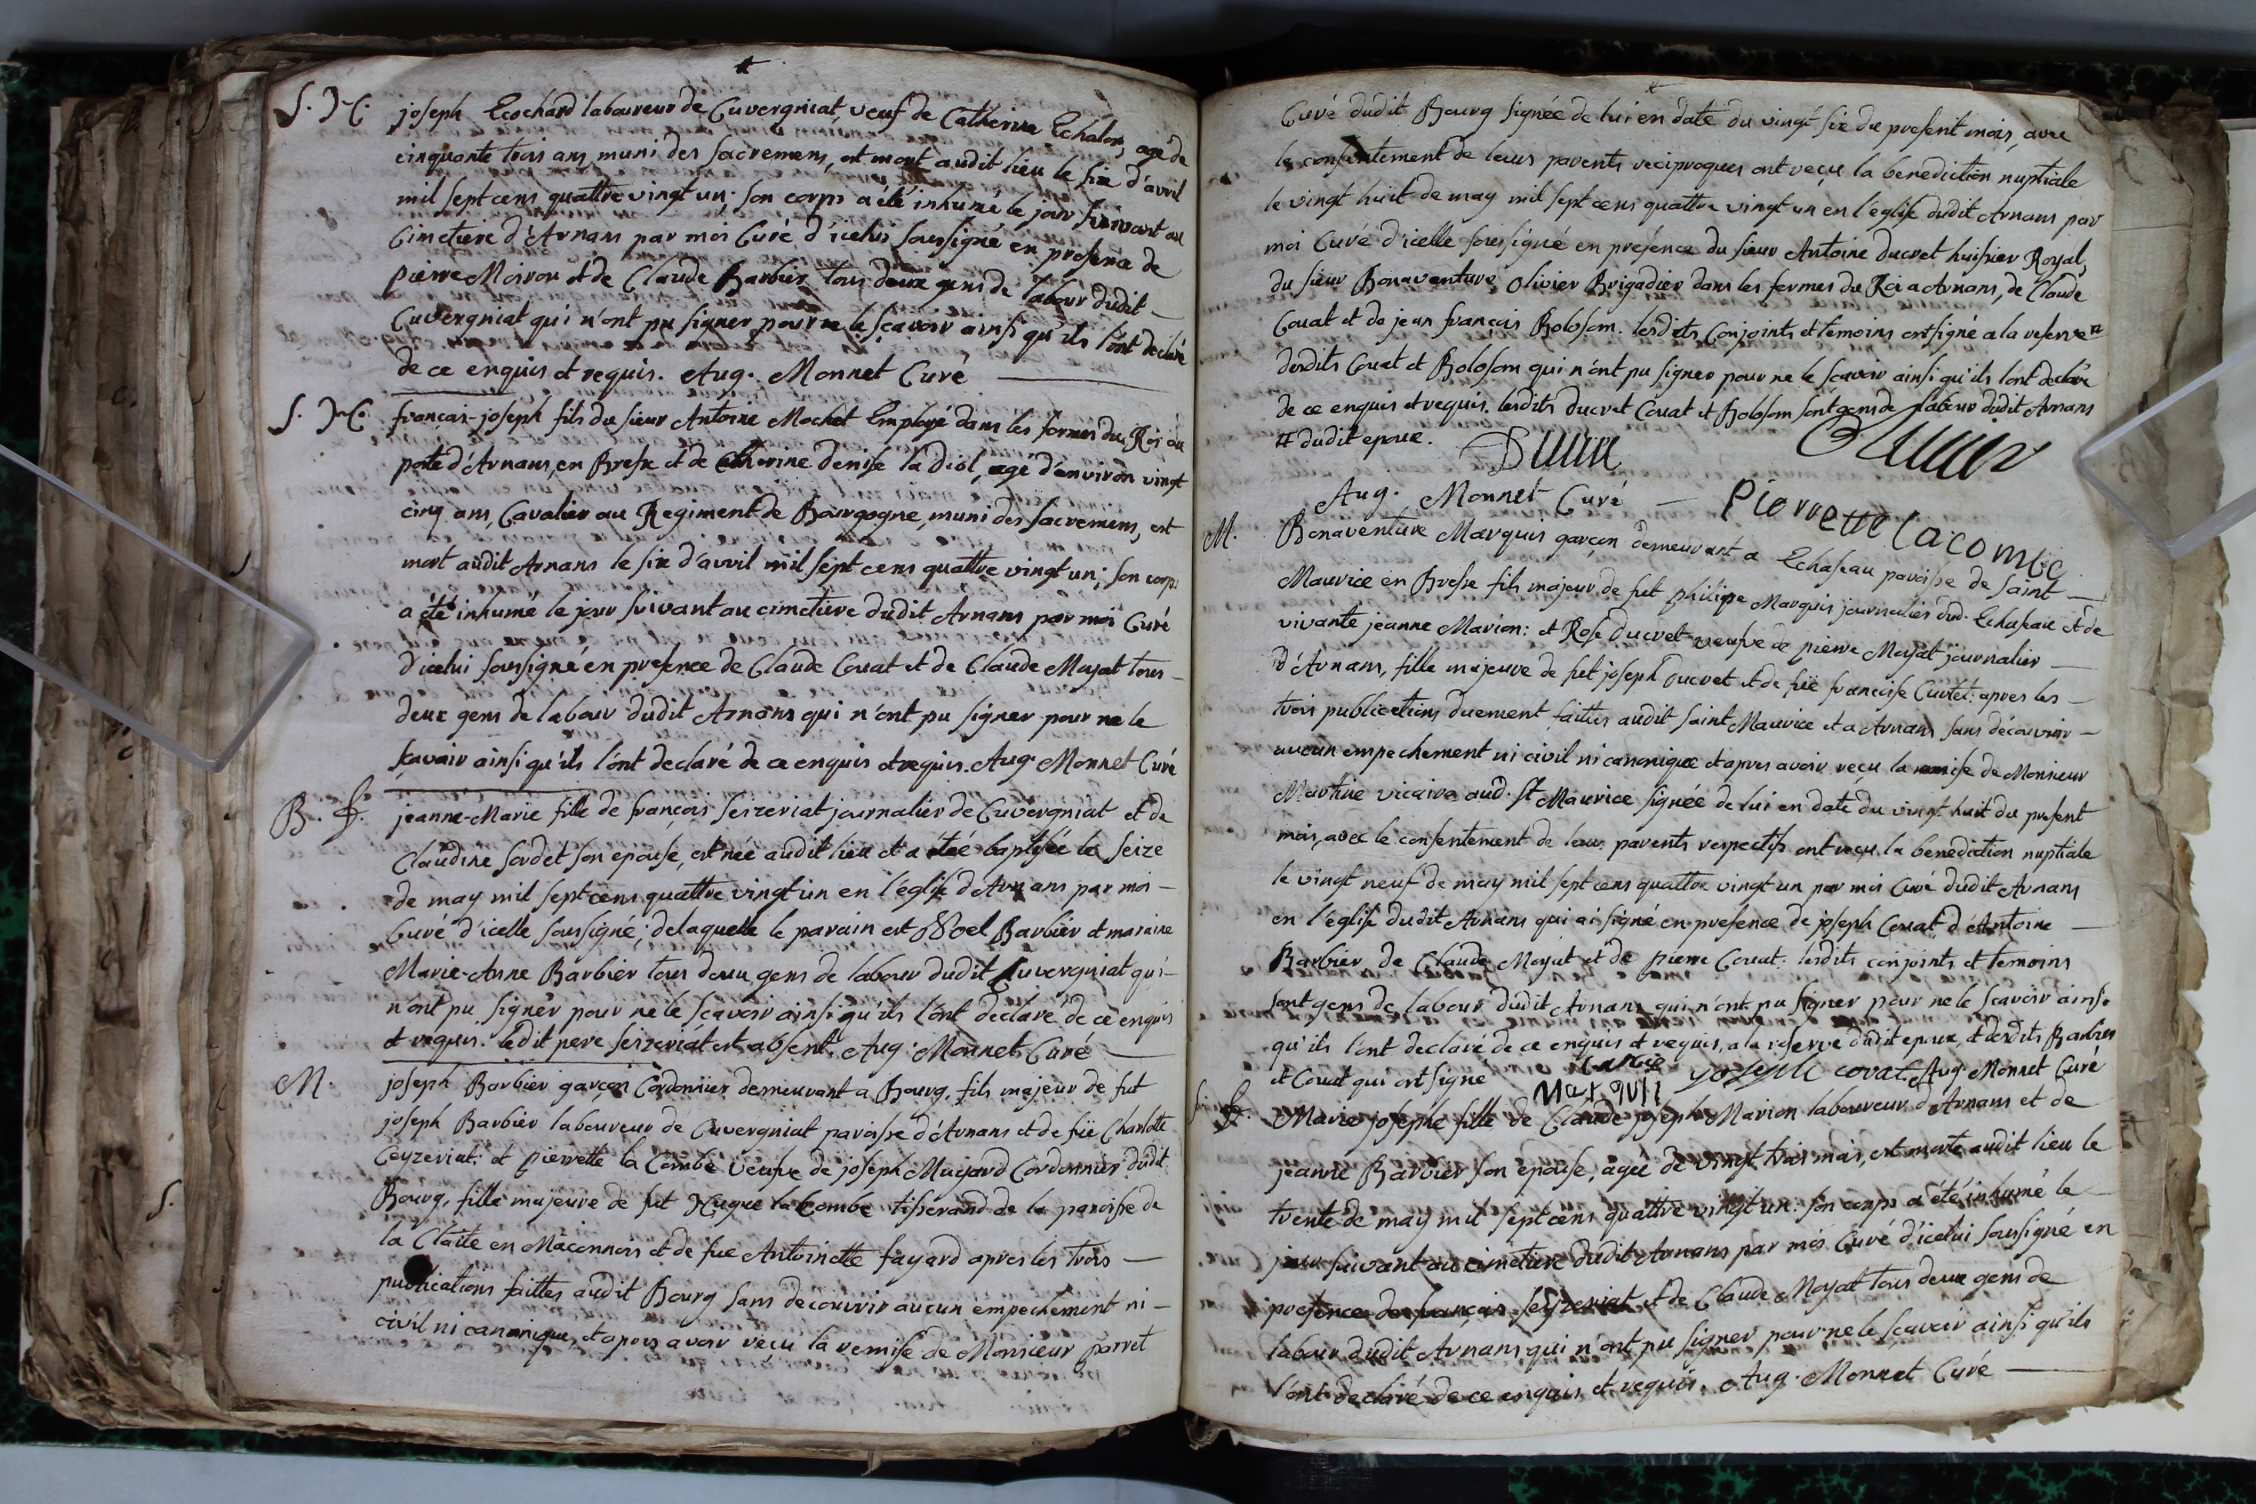 S. H. joseph Ecochard laboureur de Cuvergniat, veuf de Catherine Echalon, agé de
cinquante trois ans, muni des sacremens, est mort audit lieu le six d'avril
mil sept cens quattre vingt un; son corps a été inhumé le jour suivant au
Cimetiere d'Arnans par moi Curé d'icelui soussigné en presence de
pierre Moiron et de Claude Barbier tous deux gens de labour dudit
Cuvergniat qui n'ont pu signer pour ne le scavoir ainsi qu'ils l'ont declaré
de ce enquis et requis. Aug. Monnet Curé
S. H. francois-joseph fils du sieur Antoine Mochet Employé dans les fermes du Roi au
poste d'Arnans, en Bresse et de Catherine denise la diol, agé d'environ vingt
cinq ans, Cavalier au Regiment de Bourgogne, muni des sacremens, est
mort audit Arnans le six d'avril mil sept cens quattre vingt un; son corps
a été inhumé le jour suivant au cimetiere dudit Arnans par moi Curé
d'icelui soussigné en presence de Claude Couat et de Claude Moyat tous
deux gens de labour dudit Arnans qui n'ont pu signer pour ne le
scavoir ainsi qu'ils l'ont declaré de ce enquis et requis. Aug. Monnet Curé
B. f. jeanne-Marie fille de francois seizeriat journalier de Cuvergniat et de
Claudine sordet son epouse, est née audit lieu et a étée baptisée le seize
de may mil sept cens quattre vingt un en l'eglise d'Arnans par moi
Curé d'icelle soussigné, de laquelle le parain est Noel Barbier et maraine
Marie-Anne Barbier tous deux gens de labour dudit Cuvergniat qui
n'ont pu signer pour ne le scavoir ainsi qu'ils l'ont declaré de ce enquis
et requis. ledit pere seizeriat est absent. Aug. Monnet Curé
M. joseph Barbier garçon Cordonnier demeurant a Bourg, fils majeur de fut
joseph Barbier laboureur de Cuvergniat paroisse d'Arnans et de füe Charlotte
Ceyzeriat: et pierrette la Combe veufve de joseph Mujard Cordonnier dudit
Bourg, fille majeure de fut Hugue la Combe tisserand de la paroisse de
la Claite en Maconnois et de fue Antoinette fayard apres les trois
publications faittes audit Bourg sans decouvrir aucun empechement ni
civil ni canonique, et apres avoir reçu la remise de Monsieur parret
Curé dudit Bourg signée de lui en date du vingt six du present mois, avec
le consentement de leurs parents reciproques ont reçu la benediction nuptiale
le vingt huit de may mil sept cens quattre vingt un en l'eglise dudit Arnans par
moi Curé d'icelle soussigné en presence du sieur Antoine ducret huissier Royal,
du sieur Bonaventure Olivier Brigadier dans les fermes du Roi a Arnans, de Claude
Couat et de jean francois Bolosom. lesdits Conjoints et temoins ont signé a la reserve #
desdits Couat et Bolosom qui n'ont pu signer pour ne le scavoir ainsi qu'ils l'ont declaré
de ce enquis et requis. lesdits ducret Couat et Bolosom sont gens de labour dudit Arnans
# dudit epoux.
Aug. Monnet Curé — pierrette lacombe
M. Bonaventure Marquis garçon demeurant a Echaseau paroisse de saint
Maurice en Bresse fils majeur de fut philippe Marquis journalier dud. Echaseau et de
vivante jeanne Marion: et Rose Ducret veufve de pierre Moyat journalier
d'Arnans, fille majeure de fut joseph Ducret et de füe francoise Curtet: apres les
trois publications duement faittes audit saint Maurice et a Arnans sans découvrir
aucun empechement ni civil ni canonique et apres avoir reçu la remise de Monsieur
Martine vicaire aud. St Maurice signée de lui en date du vingt huit du present
mois, avec le consentement de leurs parents respectifs ont reçu la benediction nuptiale
le vingt neuf de may mil sept cens quattre vingt un par moi Curé dudit Arnans
en l'eglise dudit Arnans qui ai signé en presence de joseph Couat d'Antoine
Barbier de Claude Moyat et de pierre Couat. lesdits conjoints et temoins
sont gens de labour dudit Arnans qui n'ont pu signer pour ne le scavoir ainsi
qu'ils l'ont declaré de ce enquis et requis, a la reserve dudit epoux, et desdits Barbier
et Couat qui ont signé Marquis joseph covat Aug. Monnet Curé
S. f. Marie josephe fille de Claude joseph Marion laboureur d'Arnans et de
jeanne Barbier son epouse, agée de vingt trois mois, est morte audit lieu le
trente de may mil sept cens quattre vingt un: son corps a été inhumé le
jour suivant au cimetiere dudit Arnans par moi Curé d'icelui soussigné en
presence de francois seizeriat et de Claude Moyat tous deux gens de
labour dudit Arnans qui n'ont pu signer pour ne le scavoir ainsi qu'ils
l'ont declaré de ce enquis et requis. Aug. Monnet Curé